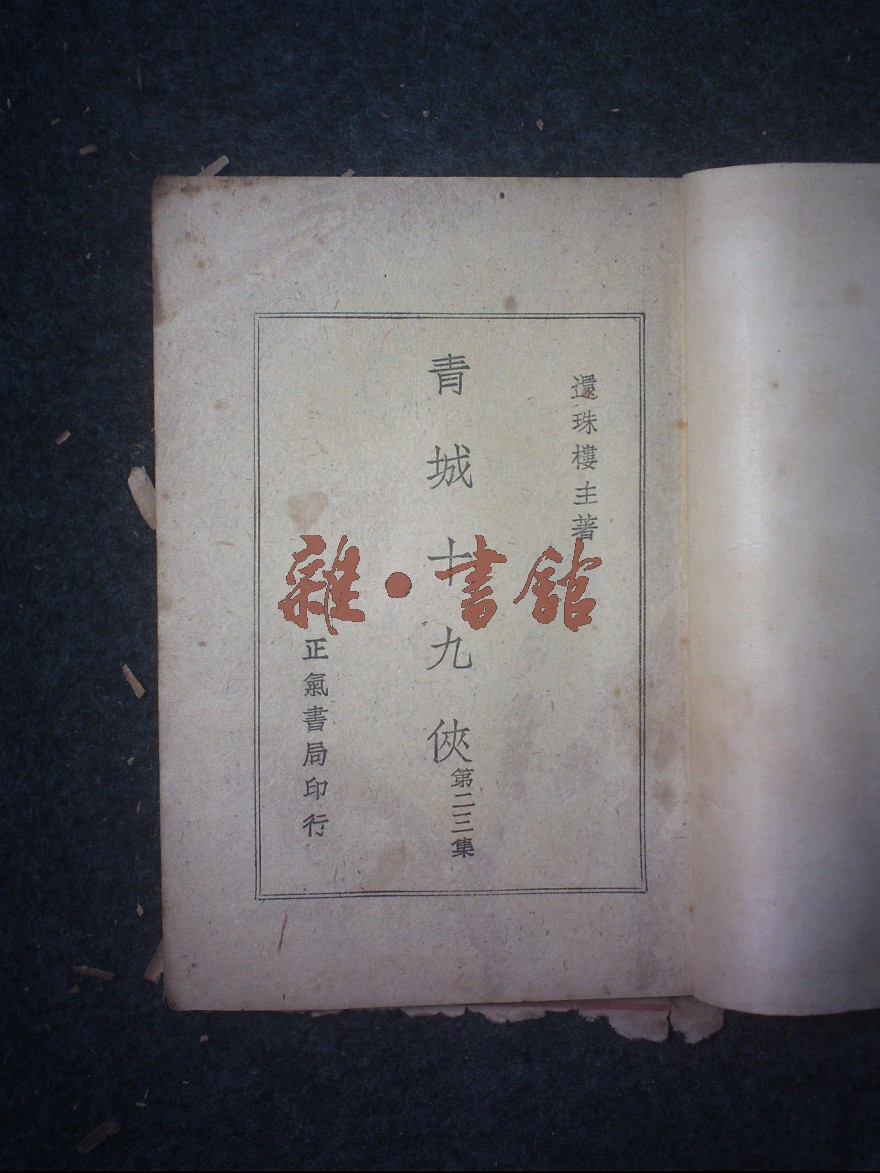 還珠樓主著
青城十九俠
第二三集
正氣書局印行
雜·書館